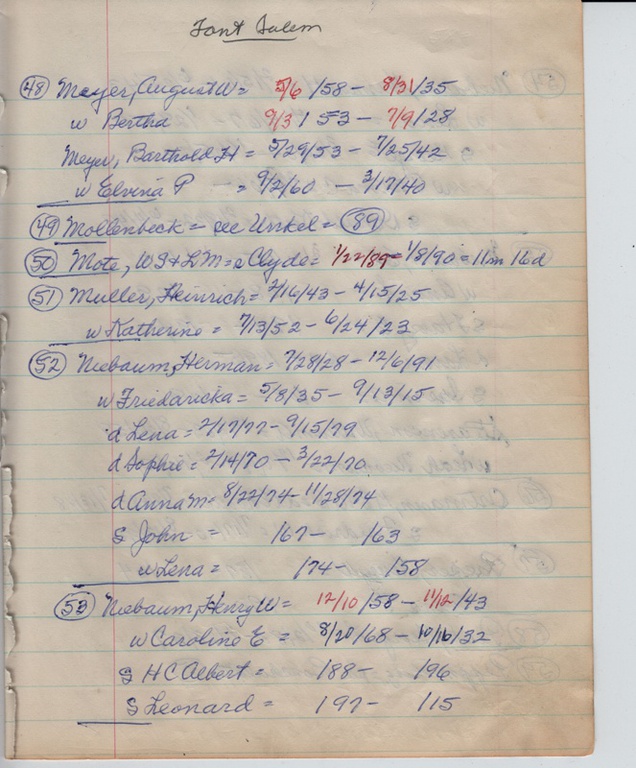 Font Salem
48 Meyer, August W = 5/6/58 - 8/31/35
w Bertha 9/3/53 - 7/9/28
Meyer, Barthold H = 5/29/53 - 7/25/42
w Elvina P - = 9/2/60 - 3/17/40
49 Mollenbeck - see Unkel = 89
50 Mote, W S & L M = s Clyde = 1/22/89 = 1/8/90 = 11m 16d
51 Muller, Heinrich = 2/16/43 - 4/15/25
w Katherine = 7/13/52 - 6/24/23
52 Niebaum, Herman = 7/28/28 - 12/6/91
w Friedaricka = 5/8/35 - 9/13/15
d Lena = 2/17/77 - 9/15/79
d Sophie = 2/14/70 - 3/22/70
d Anna M = 8/22/74 - 11/28/74
S John = /67 - /63
w Lena = /74 - /58
53 Niebaum, Henry W = 12/10/58 - 11/12/43
w Caroline E = 8/20/68 - 10/16/32
S H C Albert = /88 - /96
S Leonard = /97 - /15